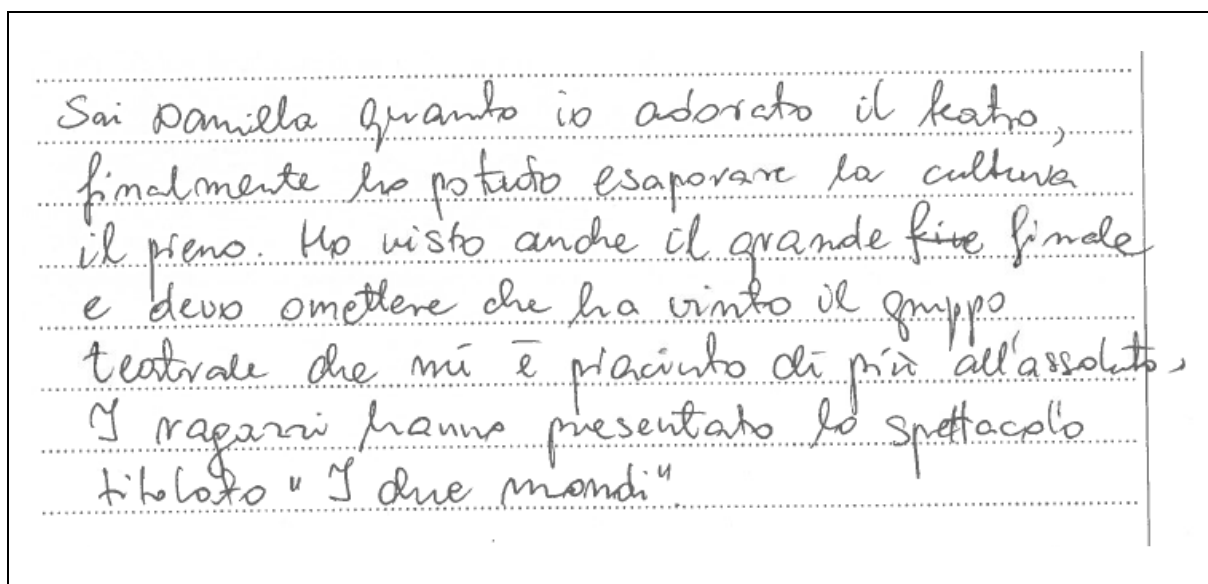 Sai Daniella quanto io adorato il teatro,
finalmente ho potuto esaporare la cultura
il pieno. Ho visto anche il grande five finale
e devo omettere che ha vinto il gruppo
teatrale che mi è piaciuto di più all'assoluto,
I ragazzi hanno presentato lo spettacolo
titolato "I due mondi".